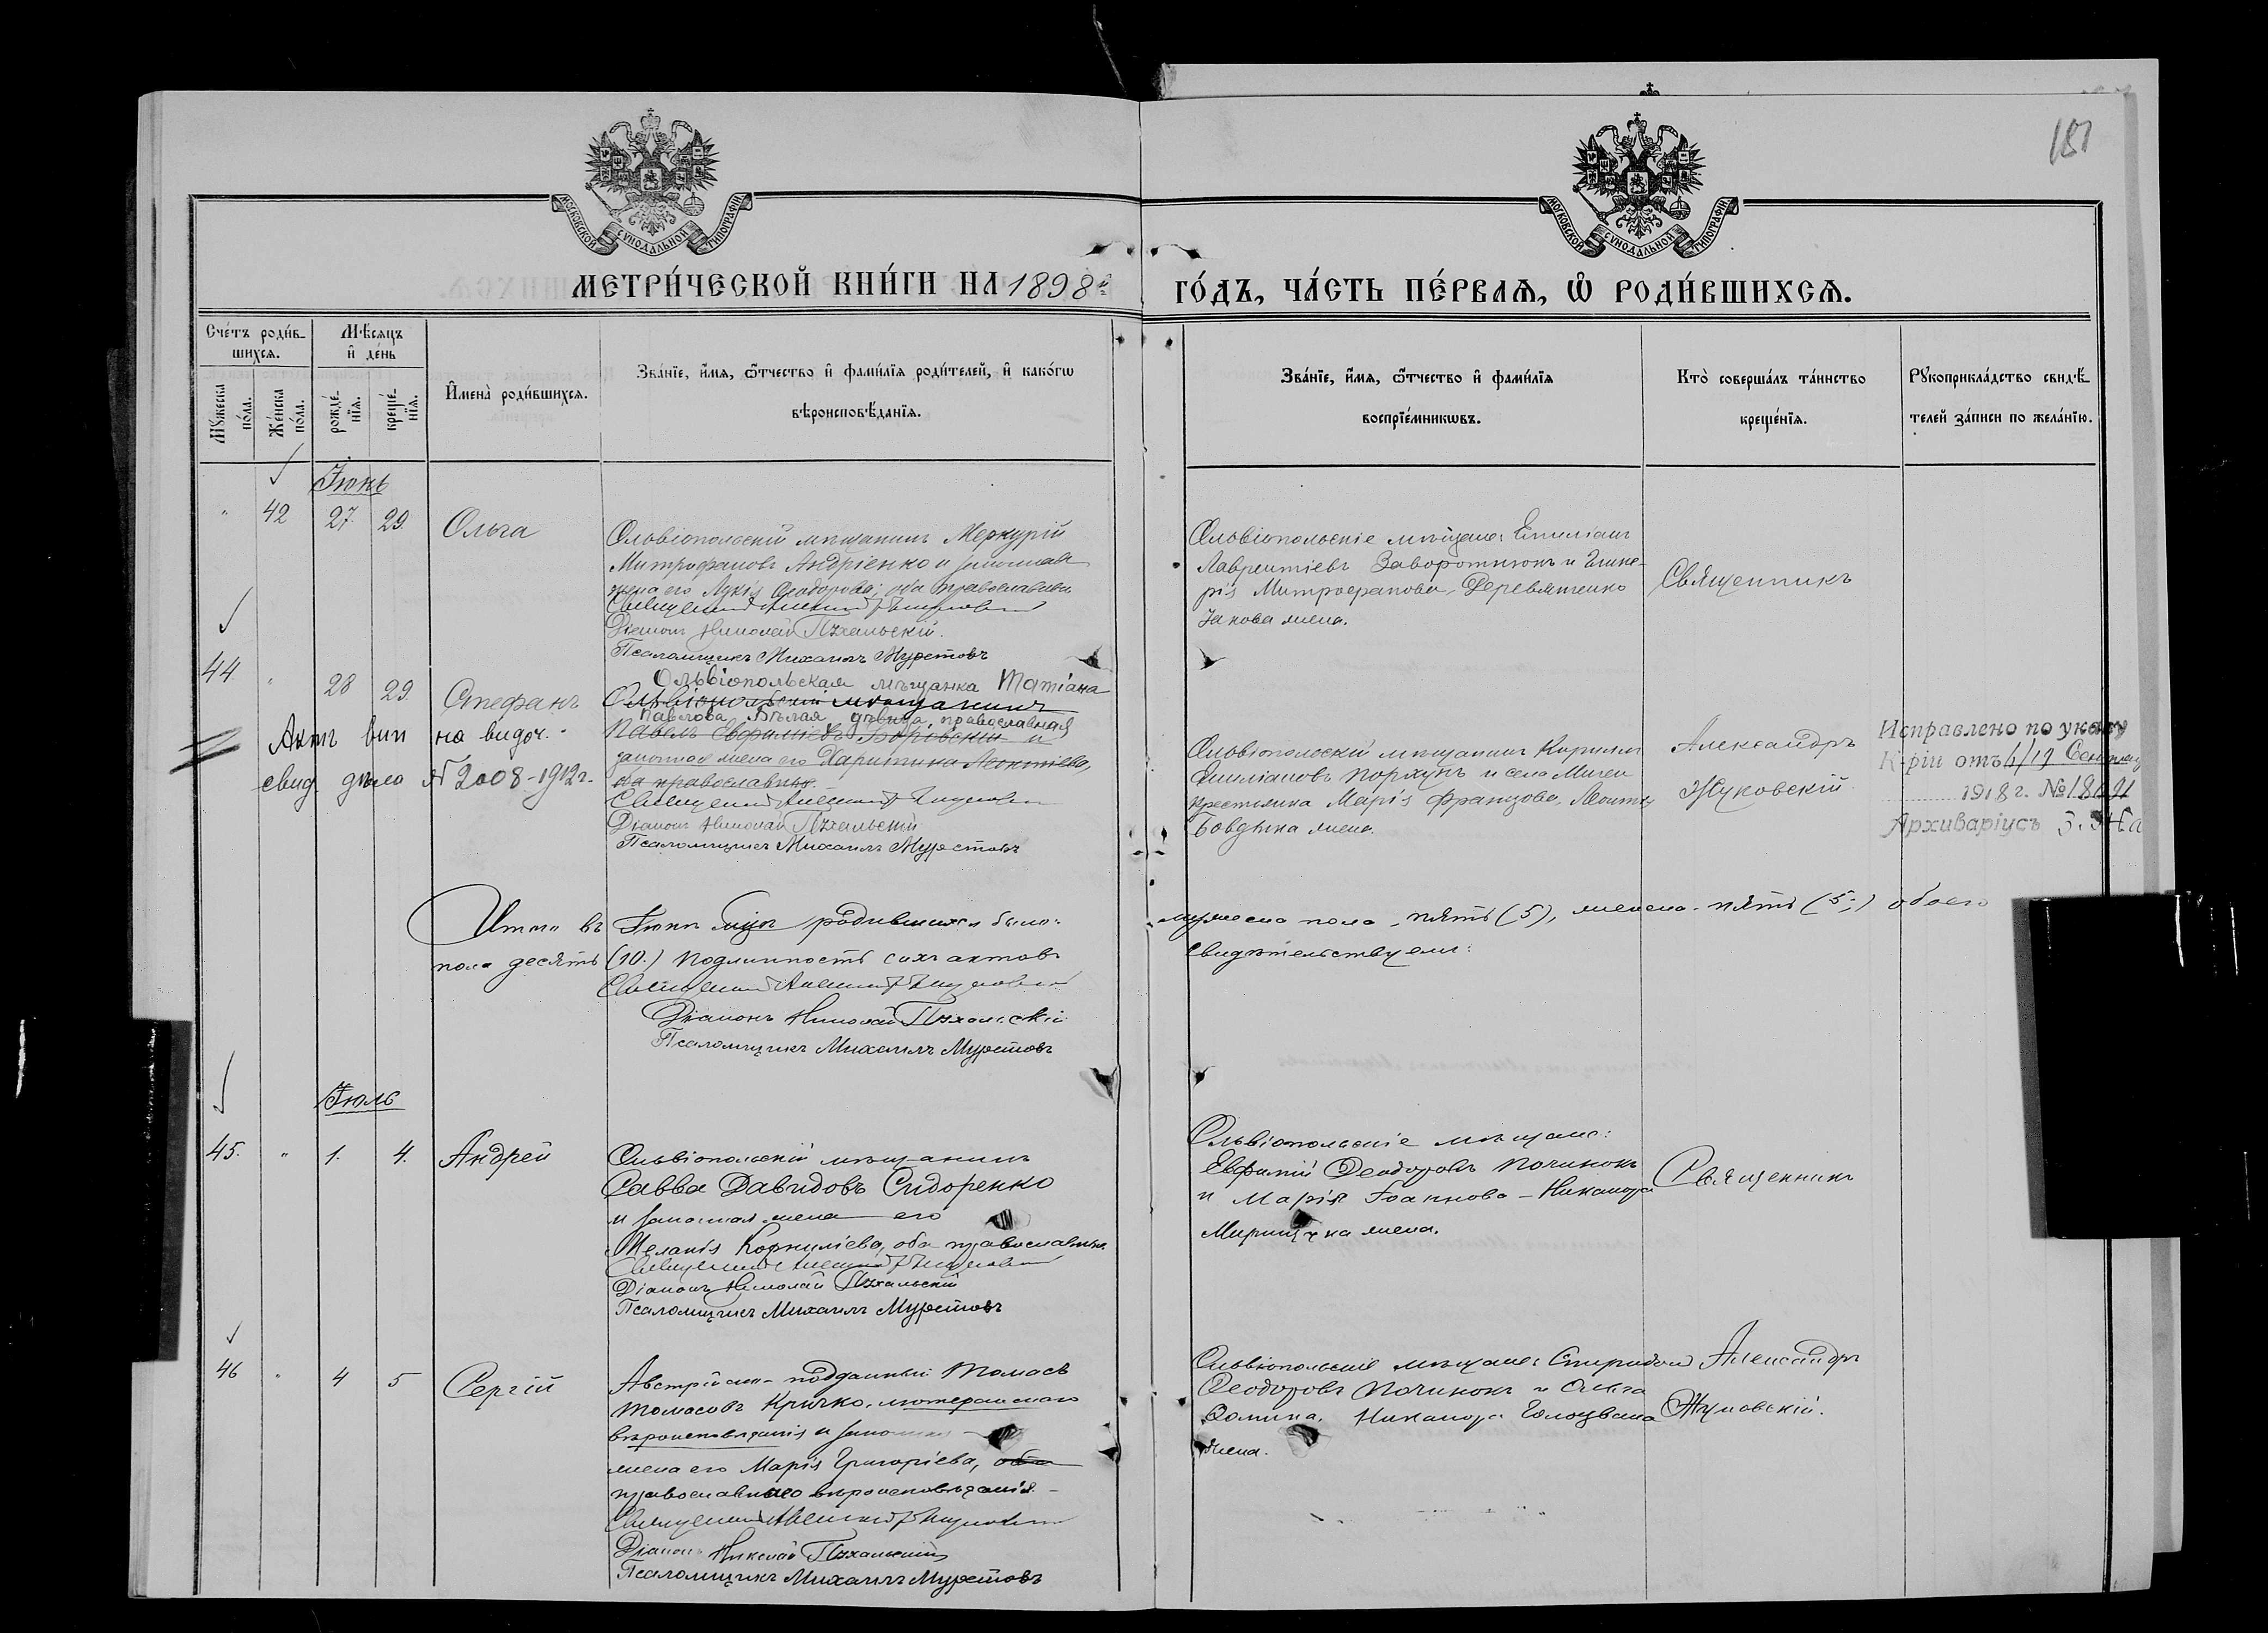 181
МОСКОВСКОЙ СУНОДАЛЬНОЙ ТИПОГРАФІИ
МОСКОВСКОЙ СУНОДАЛЬНОЙ ТИПОГРАФІИ
МЕТРИ́ЧЕСКОЙ КНИ́ГИ НА 1898й ГО́ДЪ, ЧА́СТЬ ПЕ́РВАѦ, Ѡ РОДИ́ВШИХСѦ.
Сче́тъ роди́в-
шихсѧ.
Мꙋжеска по́ла.
Же́нска по́ла.
Мѣ́сѧцъ
и҆ де́нь
рожде́-
нїѧ.
креще́-
нїѧ.
И҆мена̀ роди́вшихсѧ.
Зва́нїе, и҆́мѧ, ѻ҆́тчество и҆ фами́лїѧ роди́телей, и҆ како́гѡ
вѣроисповѣ́данїѧ.
Зва́нїе, и҆́мѧ, ѻ҆́тчество и҆ фами́лїѧ
воспрїе́мникѡвъ.
Кто̀ соверша́лъ та́инство
креще́нїѧ.
Рꙋкоприкла́дство свидѣ́-
телей за́писи по жела́нїю.
Іюнь
" 42 27. 29. Ольга
Ольвіопольскій мѣщанинъ Меркурій
Митрофановъ Андріенко и законная
жена его Лукія Ѳеодорова; оба православные
Священникъ
Діаконъ Николай Пухальскій.
Псаломщикъ Михаилъ Муретовъ
Ольвіопольскіе мѣщане: Емиліанъ
Лаврентіевъ Заворотнюкъ и Глике-
рія Митрофанова, Деревянченко
Іакова жена.
Священникъ
44 " 28 29. Стефанъ
Ольвіопольская мѣщанка Татіана
Ольвіопольскій мѣщанинъ
Павлова Бѣлая, дѣвица, православная
Павелъ Евфиміевъ Боровскій и
законная жена его Харитина Леонтіева,
оба православные.
Священникъ
Діаконъ Николай Пухальскій
Псаломщикъ Михаилъ Муретовъ
Актъ вип на видоч.-
свид дѣло № 2008-1912г.
Ольвіопольскій мѣщанинъ Кириллъ
Емиліановъ Порхунъ и села Мигеи
крестьянка Марія Францова, Леонтія
Бовдыка жена.
Александръ
Жуковскій
Исправлено по указу
К-ріи отъ
1918 г. №
Архиваріусъ
Итого въ Іюнѣ мцѣ родившихся было: мужеска пола - пять (5), женска - пять (5;) обоего
пола десять (10.) Подлинность сихъ актовъ свидѣтельствуемъ:
Священникъ
Діаконъ Николай Пухальскій
Псаломщикъ Михаилъ Муретовъ
Іюль
45. " 1. 4. Андрей
Ольвіопольскій мѣщанинъ
Савва Давидовъ Сидоренко
и законная жена его
Меланія Корниліева, оба православные.
Священникъ
Діаконъ Николай Пухальскій
Псаломщикъ Михаилъ Муретовъ
Ольвіопольскіе мѣщане:
Евфимій Ѳеодоровъ Починокъ
и Марія Іоаннова - Никанора
жена.
Священникъ
46 " 4 5 Сергій
Австрійско-подданный Томасъ
Томасовъ Кричко, лютеранскаго
вѣроисповѣданія и законная
жена его Марія Григоріева, оба
православнаго вѣроисповѣданія -
Священникъ
Діаконъ Николай Пухальскій
Псаломщикъ Михаилъ Муретовъ
Ольвіопольскіе мѣщане: Спиридонъ
Ѳеодоровъ Починокъ и Ольга
Ѳомина, Никанора
жена.
Александръ
Жуковскій.